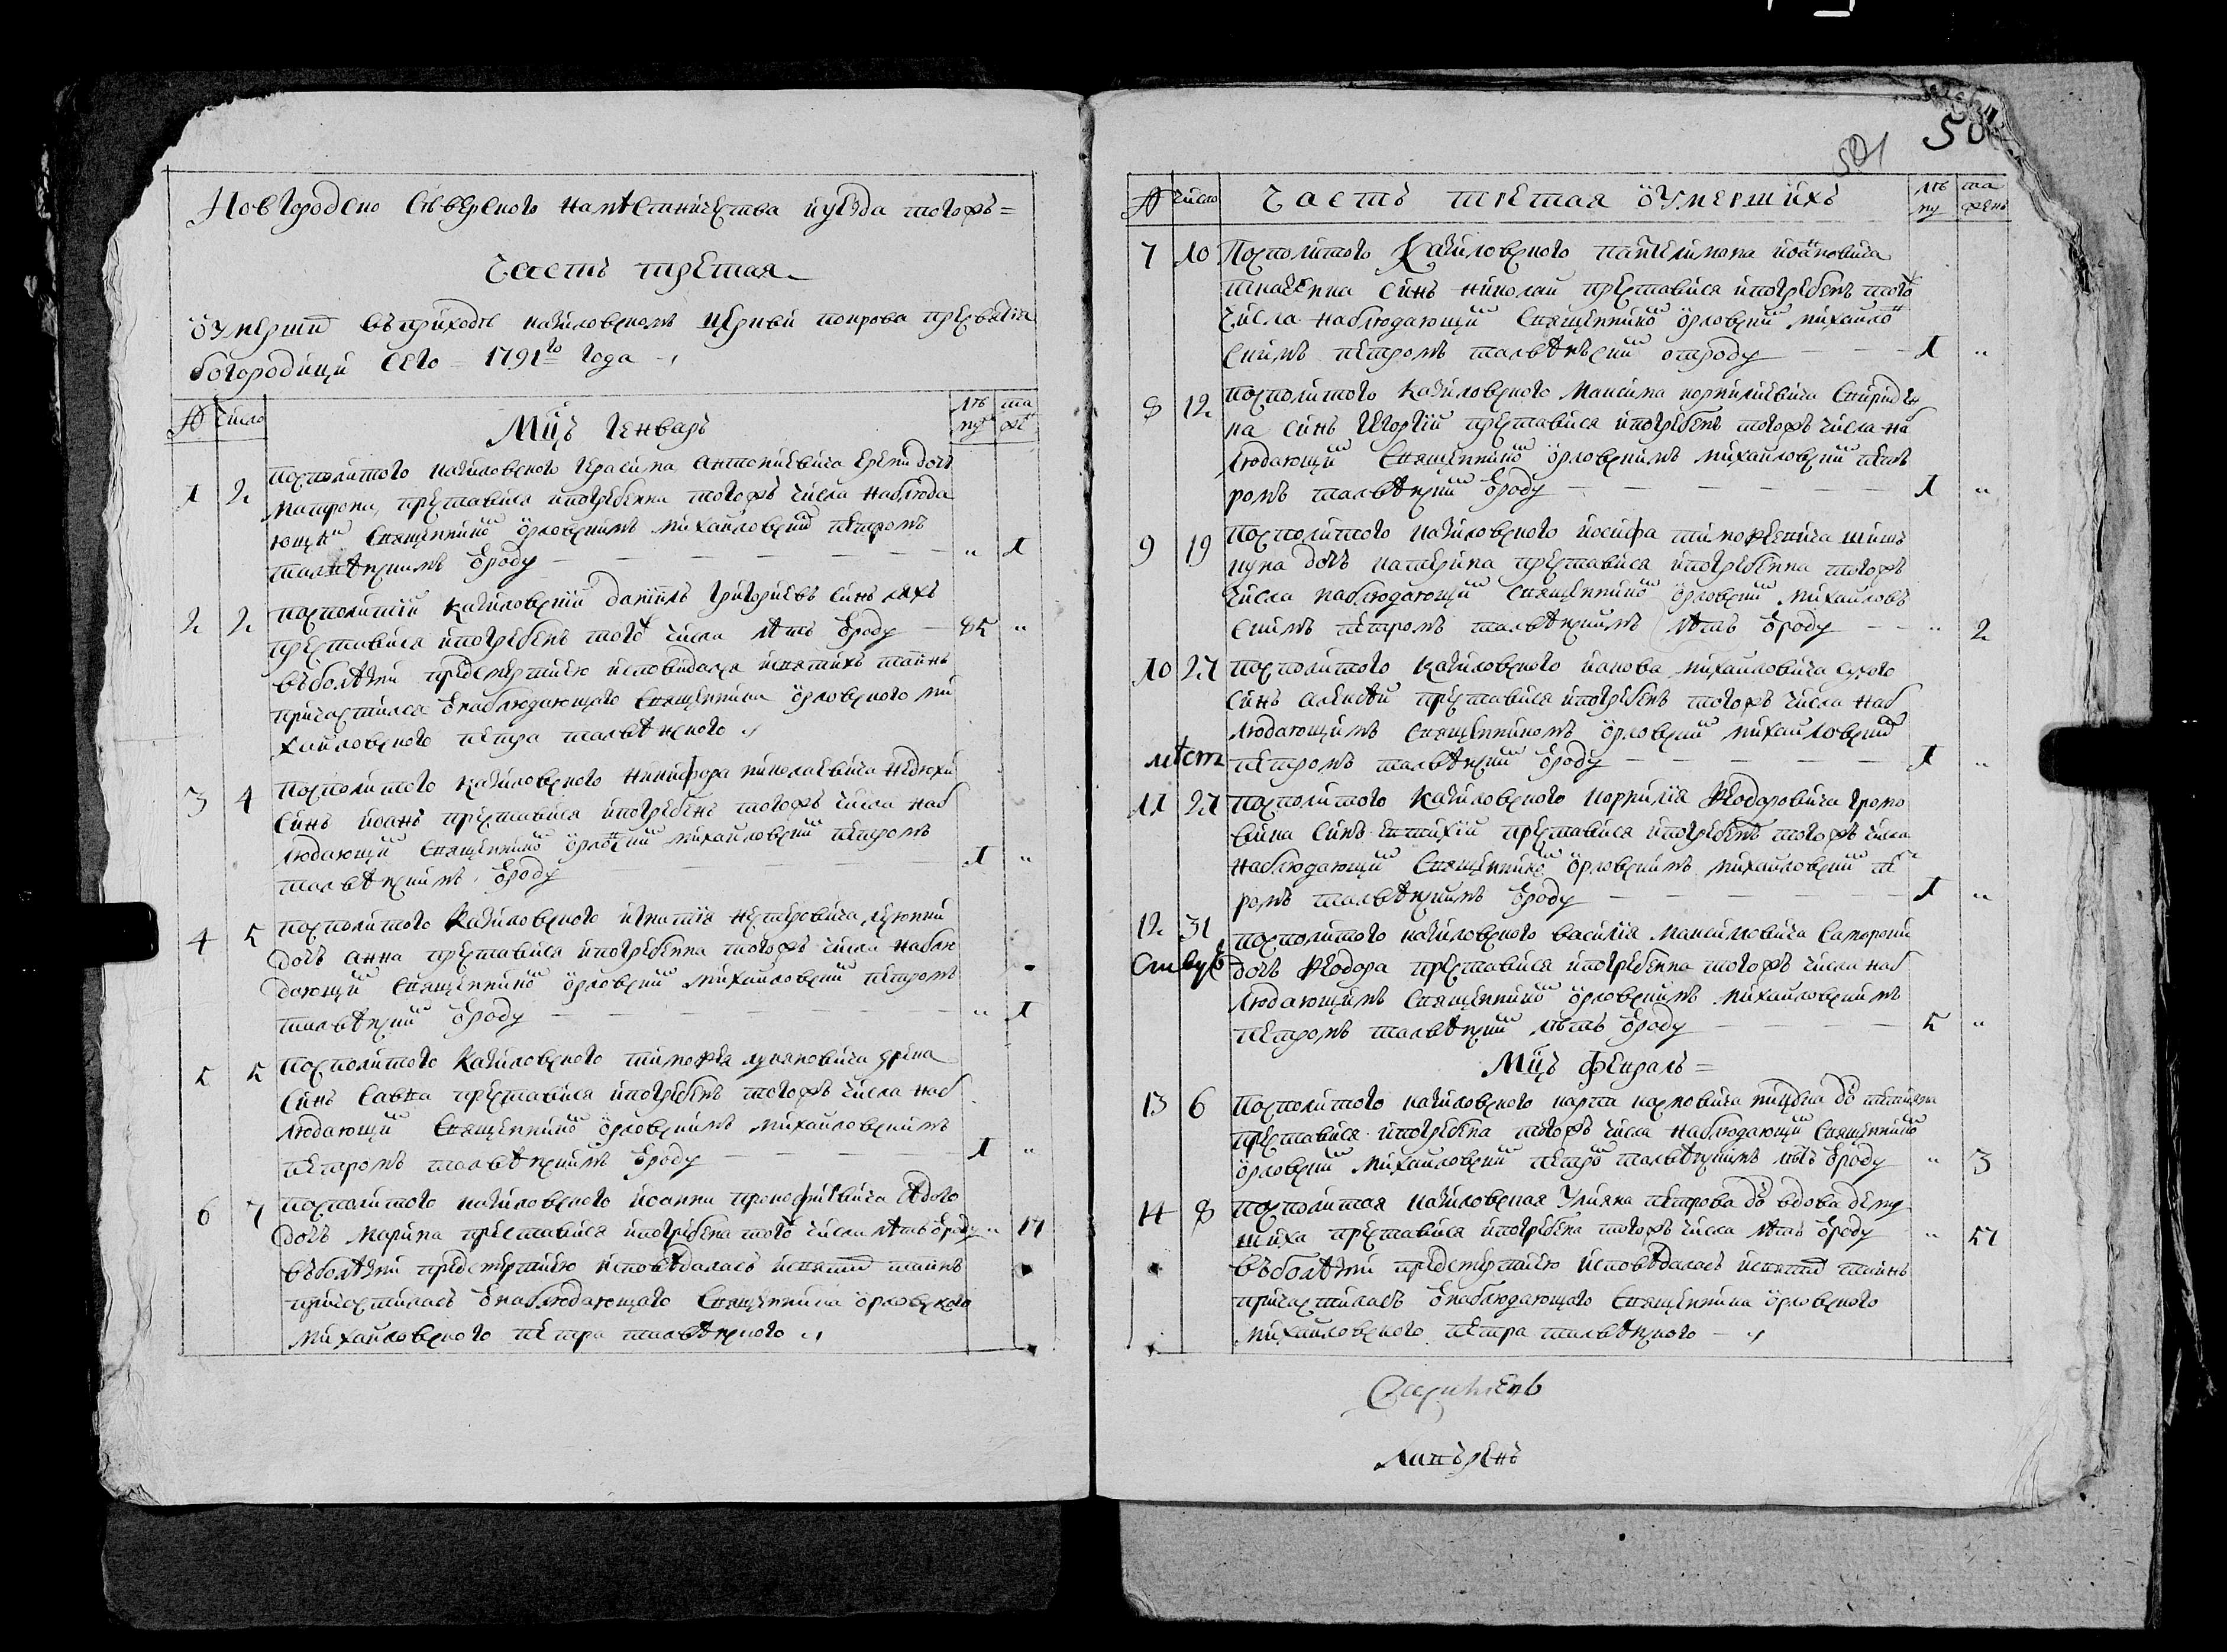 Новгородско Сѣверского намѣстничества иуезда тогожъ =
Часть третая
оумершихъ въприходе кашловскомъ церкви покрова пресвятія
богородици сего = 1791го года
№ Число Мцъ Генваръ лѣ та му же
посполитого кашловского герасима антониевича дочъ
1 2 матрона, преставися ипогребенна тогожъ числа наблюда
ющим священником орловскимъ михайловским петромъ
талвѣнскимъ ѿроду — " 1
2 2 посполитій кашловскій даніилъ григориевъ синъ ляхъ
преставися ипогребенъ тогож числа лѣтъ ѿроду — 85 "
въболѣзни предсмертнею исповидался исвятихъ таинъ
причастился ѿнаблюдающаго священника орловского ми
хайловского петра талвѣнского
3 4 посполитого кашловского никифора николаевича
синъ иоанъ преставися ипогребенъ тогожъ числа наб
людающим священником орловским михайловским петромъ
талвѣнскимъ ѿроду — 1 "
4 5 посполитого кашловского игнатія
дочъ анна преставися ипогребенна тогожъ числа наблю
дающим священником орловским михайловским петромъ
талвѣнским ѿроду — " 1
5 5 посполитого кашловского тимофея лукяновича
синъ савва преставися ипогребенъ тогожъ числа наб
людающим священником орловскимъ михайловскимъ
петромъ талвѣнскимъ ѿроду — 1 "
6 7 посполитого кашловского иоанна прокофиевича
дочъ марина преставися ипогребена того числа лѣтъ ѿроду " 17
въболѣзни предсмертнею исповѣдалась исвятих таинъ
причастиласъ ѿнаблюдающаго священника орловского
михайловского петра талвѣнского
501 50
№ Число Частъ третая оумершихъ лѣ та му женъ
7 10 Посполитого Кашловского пантелимона иоанновича
ткаченка синъ николай преставися ипогребенъ тогож
числа наблюдающим священником орловским михайлов
скимъ петромъ талвѣнским отроду — 1 "
8 12 посполитого кашловского максима корнилиевича спириден
ка синъ георгій преставися ипогребенъ тогожъ числа наб
людающим священником орловскимъ михайловским пет
ромъ талвѣнским ѿроду — 1 "
9 19 посполитого кашловского иосифа тимофеевича
дочъ катерина преставися ипогребенна тогожъ
числа наблюдающим священником орловским михайловъ
скимъ петромъ талвѣнскимъ лѣтъ ѿроду — " 2
10 27 посполитого кашловского иакова михайловича сухого
синъ алексѣй преставися ипогребенъ тогожъ числа наб
людающимъ священникомъ орловским михайловским
петромъ талвѣнским ѿроду — 1 "
11 27 посполитого кашловского корнилія феодоровича
синъ евтихій преставися ипогребенъ тогожъ числа
наблюдающим священником орловскимъ михайловским пет
ромъ талвѣнскимъ ѿроду — 1 "
12 31 посполитого кашловского василія максимовича
дочъ феодора преставися ипогребенна тогожъ числа наб
людающимъ священником орловскимъ михайловскимъ
петромъ талвѣнским лѣтъ ѿроду — 5 "
Мцъ февралъ =
13 6 Посполитого кашловского карпа
преставися ипогребена тогожъ числа наблюдающим священником
орловским михайловским петром талвѣнскимъ лѣтъ ѿроду " 3
14 8 посполитая кашловская улияна петрова вдова
преставися ипогребена тогожъ числа лѣтъ ѿроду " 57
въболѣзни предсмертнею исповѣдаласъ исвятих таинъ
причастиласъ ѿнаблюдающаго священника орловского
михайловского петра талвѣнского